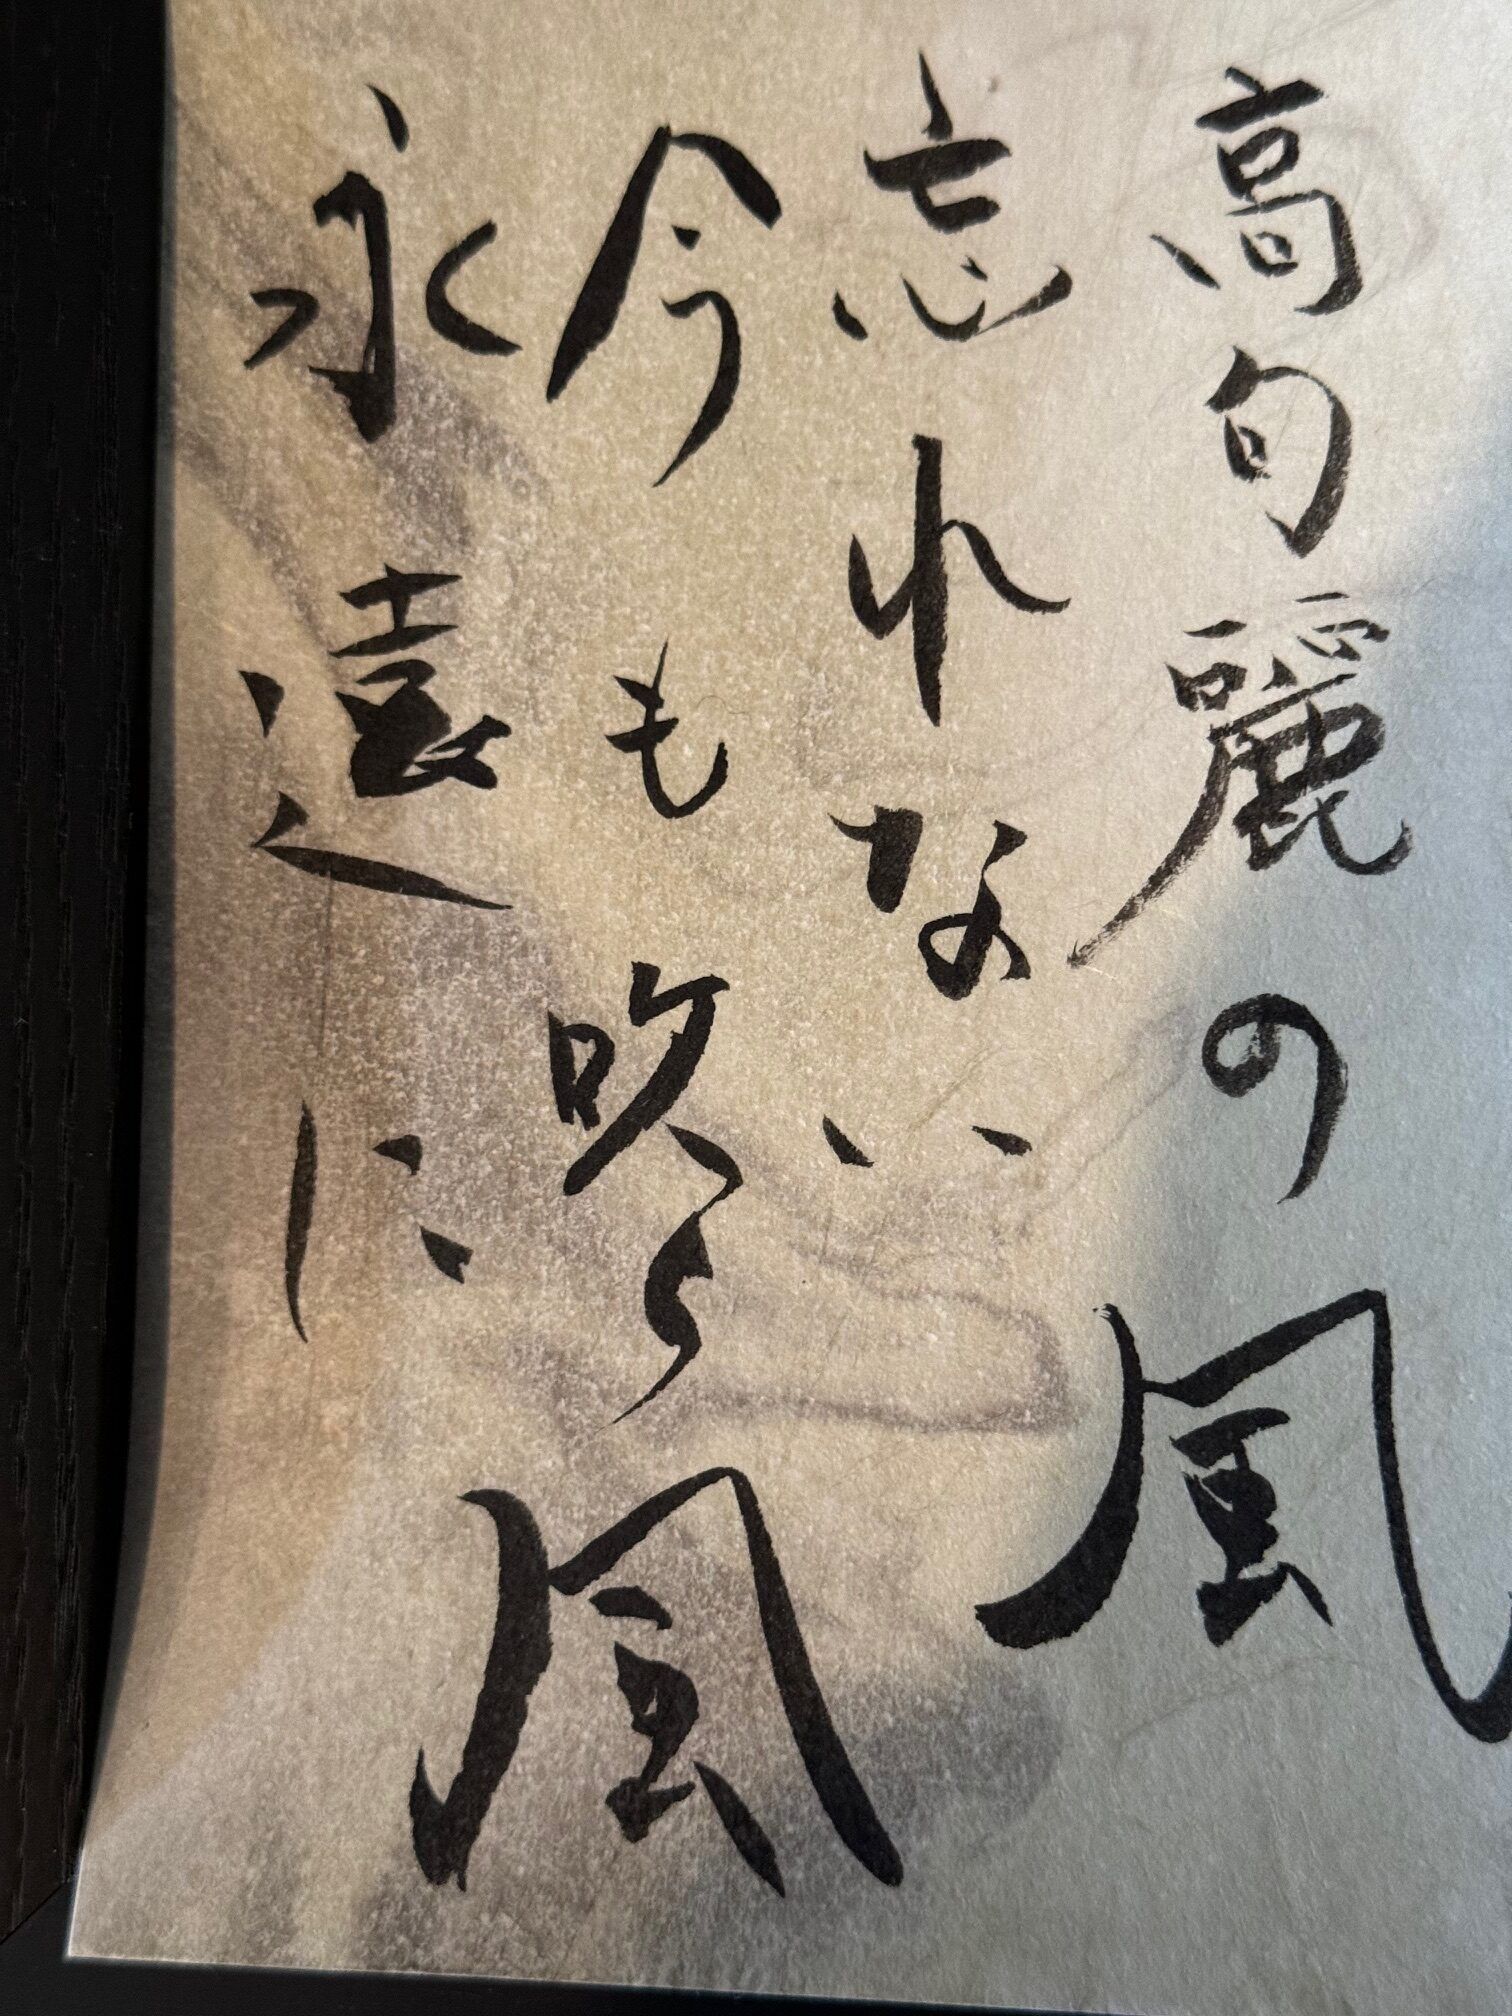 高句麗の風
忘れない
今も吹く風
永遠に